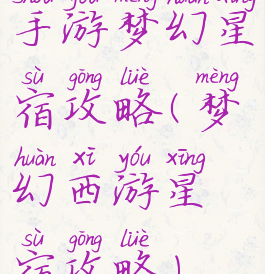 shǒu yóu mèng huàn xīng
手游梦幻星
sù gōng lüè mèng
宿攻略(梦
huàn xī yóu xīng
幻西游星
sù gōng lüè
宿攻略)